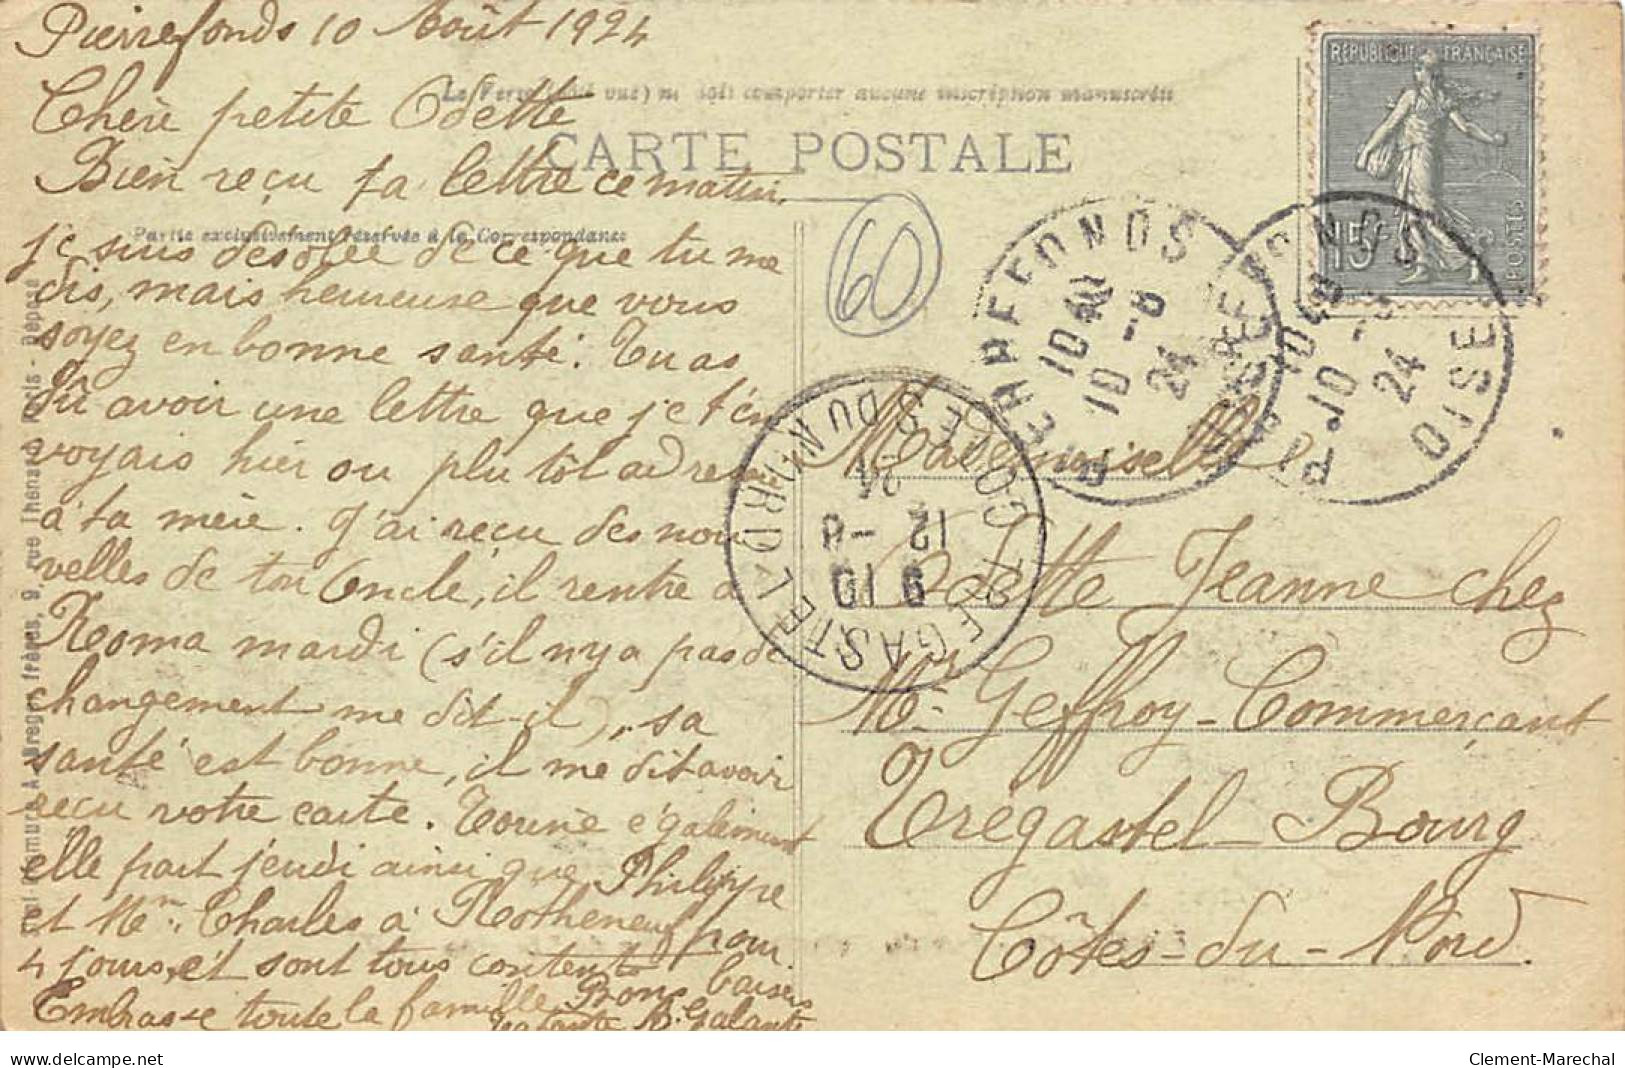 Pierrefonds 10 Août 1924
Chère petite Odette
Bien reçu ta lettre ce matin.
je suis désolée de ce que tu me
dis, mais heureuse que vous
soyez en bonne santé. Tu as
dû avoir une lettre que je t'en
voyais hier ou plutôt adressée
à ta mère. J'ai reçu des nou
velles de ton Oncle, il rentre à
Kooma mardi (s'il n'y a pas de
changement me dit-il), sa
santé est bonne, il me dit avoir
reçu votre carte. également
elle part jeudi ainsi que Philippe
et Mme Charles à Rotheneuf pour
4 jours, et sont tous contents
Embrasse toute la famille Bons baisers
ta tante M. Galante
La Verso (côté vue) ne doit comporter aucune inscription manuscrite
CARTE POSTALE
Partie exclusivement réservée à la Correspondance
frères, 9, rue Thénard, Paris - Déposé
60
RÉPUBLIQUE FRANÇAISE
15c
POSTES
PIERREFONDS
10
10 -8
24
PIERREFONDS
OISE
10
10 -8
24
TREGASTEL
COTES DU NORD
9 10
12 -8
24
Mademoiselle
Odette Jeanne chez
Mr Geffroy - Commerçant
Trégastel - Bourg
Côtes-du-Nord.
delcampe.net
Clement-Marechal